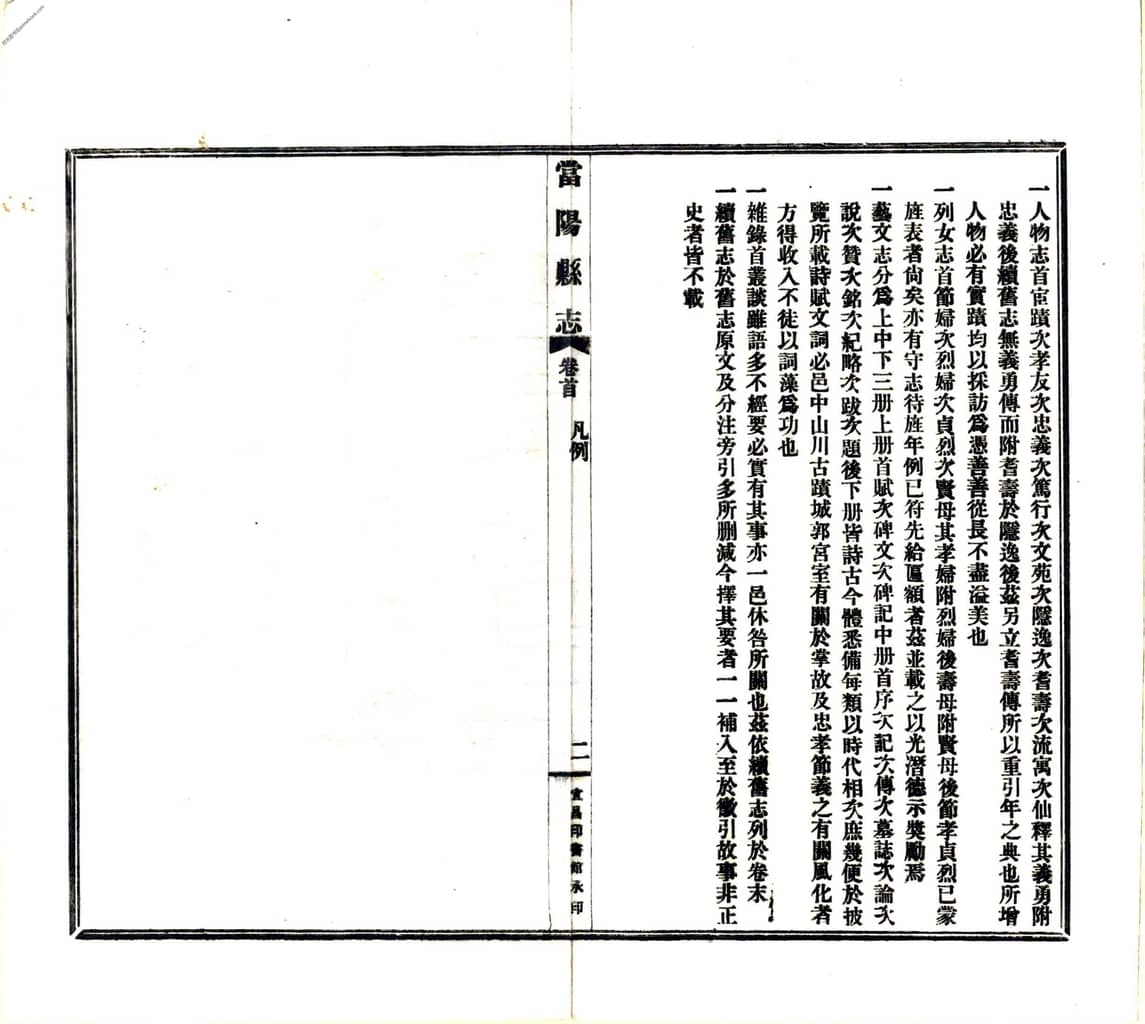 一人物志首宦蹟次孝友次忠義次篤行次文苑次隱逸次耆壽次流寓次仙釋其義勇附
忠義後續舊志無義勇傳而附耆壽於隱逸後茲另立耆壽傳所以重引年之典也所增
人物必有實蹟均以採訪爲憑善善從長不盡溢美也
一列女志首節婦次烈婦次貞烈次賢母其孝婦附烈婦後壽母附賢母後節孝貞烈已蒙
旌表者尙矣亦有守志待旌年例已符先給匾額者茲並載之以光潛德示獎勵焉
一藝文志分爲上中下三册上册首賦次碑文次碑記中册首序次記次傳次墓誌次論次
說次贊次銘次紀略次跋次題後下册皆詩古今體悉備每類以時代相次庶幾便於披
覽所載詩賦文詞必邑中山川古蹟城郭宮室有關於掌故及忠孝節義之有關風化者
方得收入不徒以詞藻爲功也
一雜錄首叢談雖語多不經要必實有其事亦一邑休咎所關也茲依續舊志列於卷末
一續舊志於舊志原文及分注旁引多所删減今擇其要者一一補入至於徵引故事非正
史者皆不載
當陽縣志
卷首
凡例
二
宜昌印書館承印